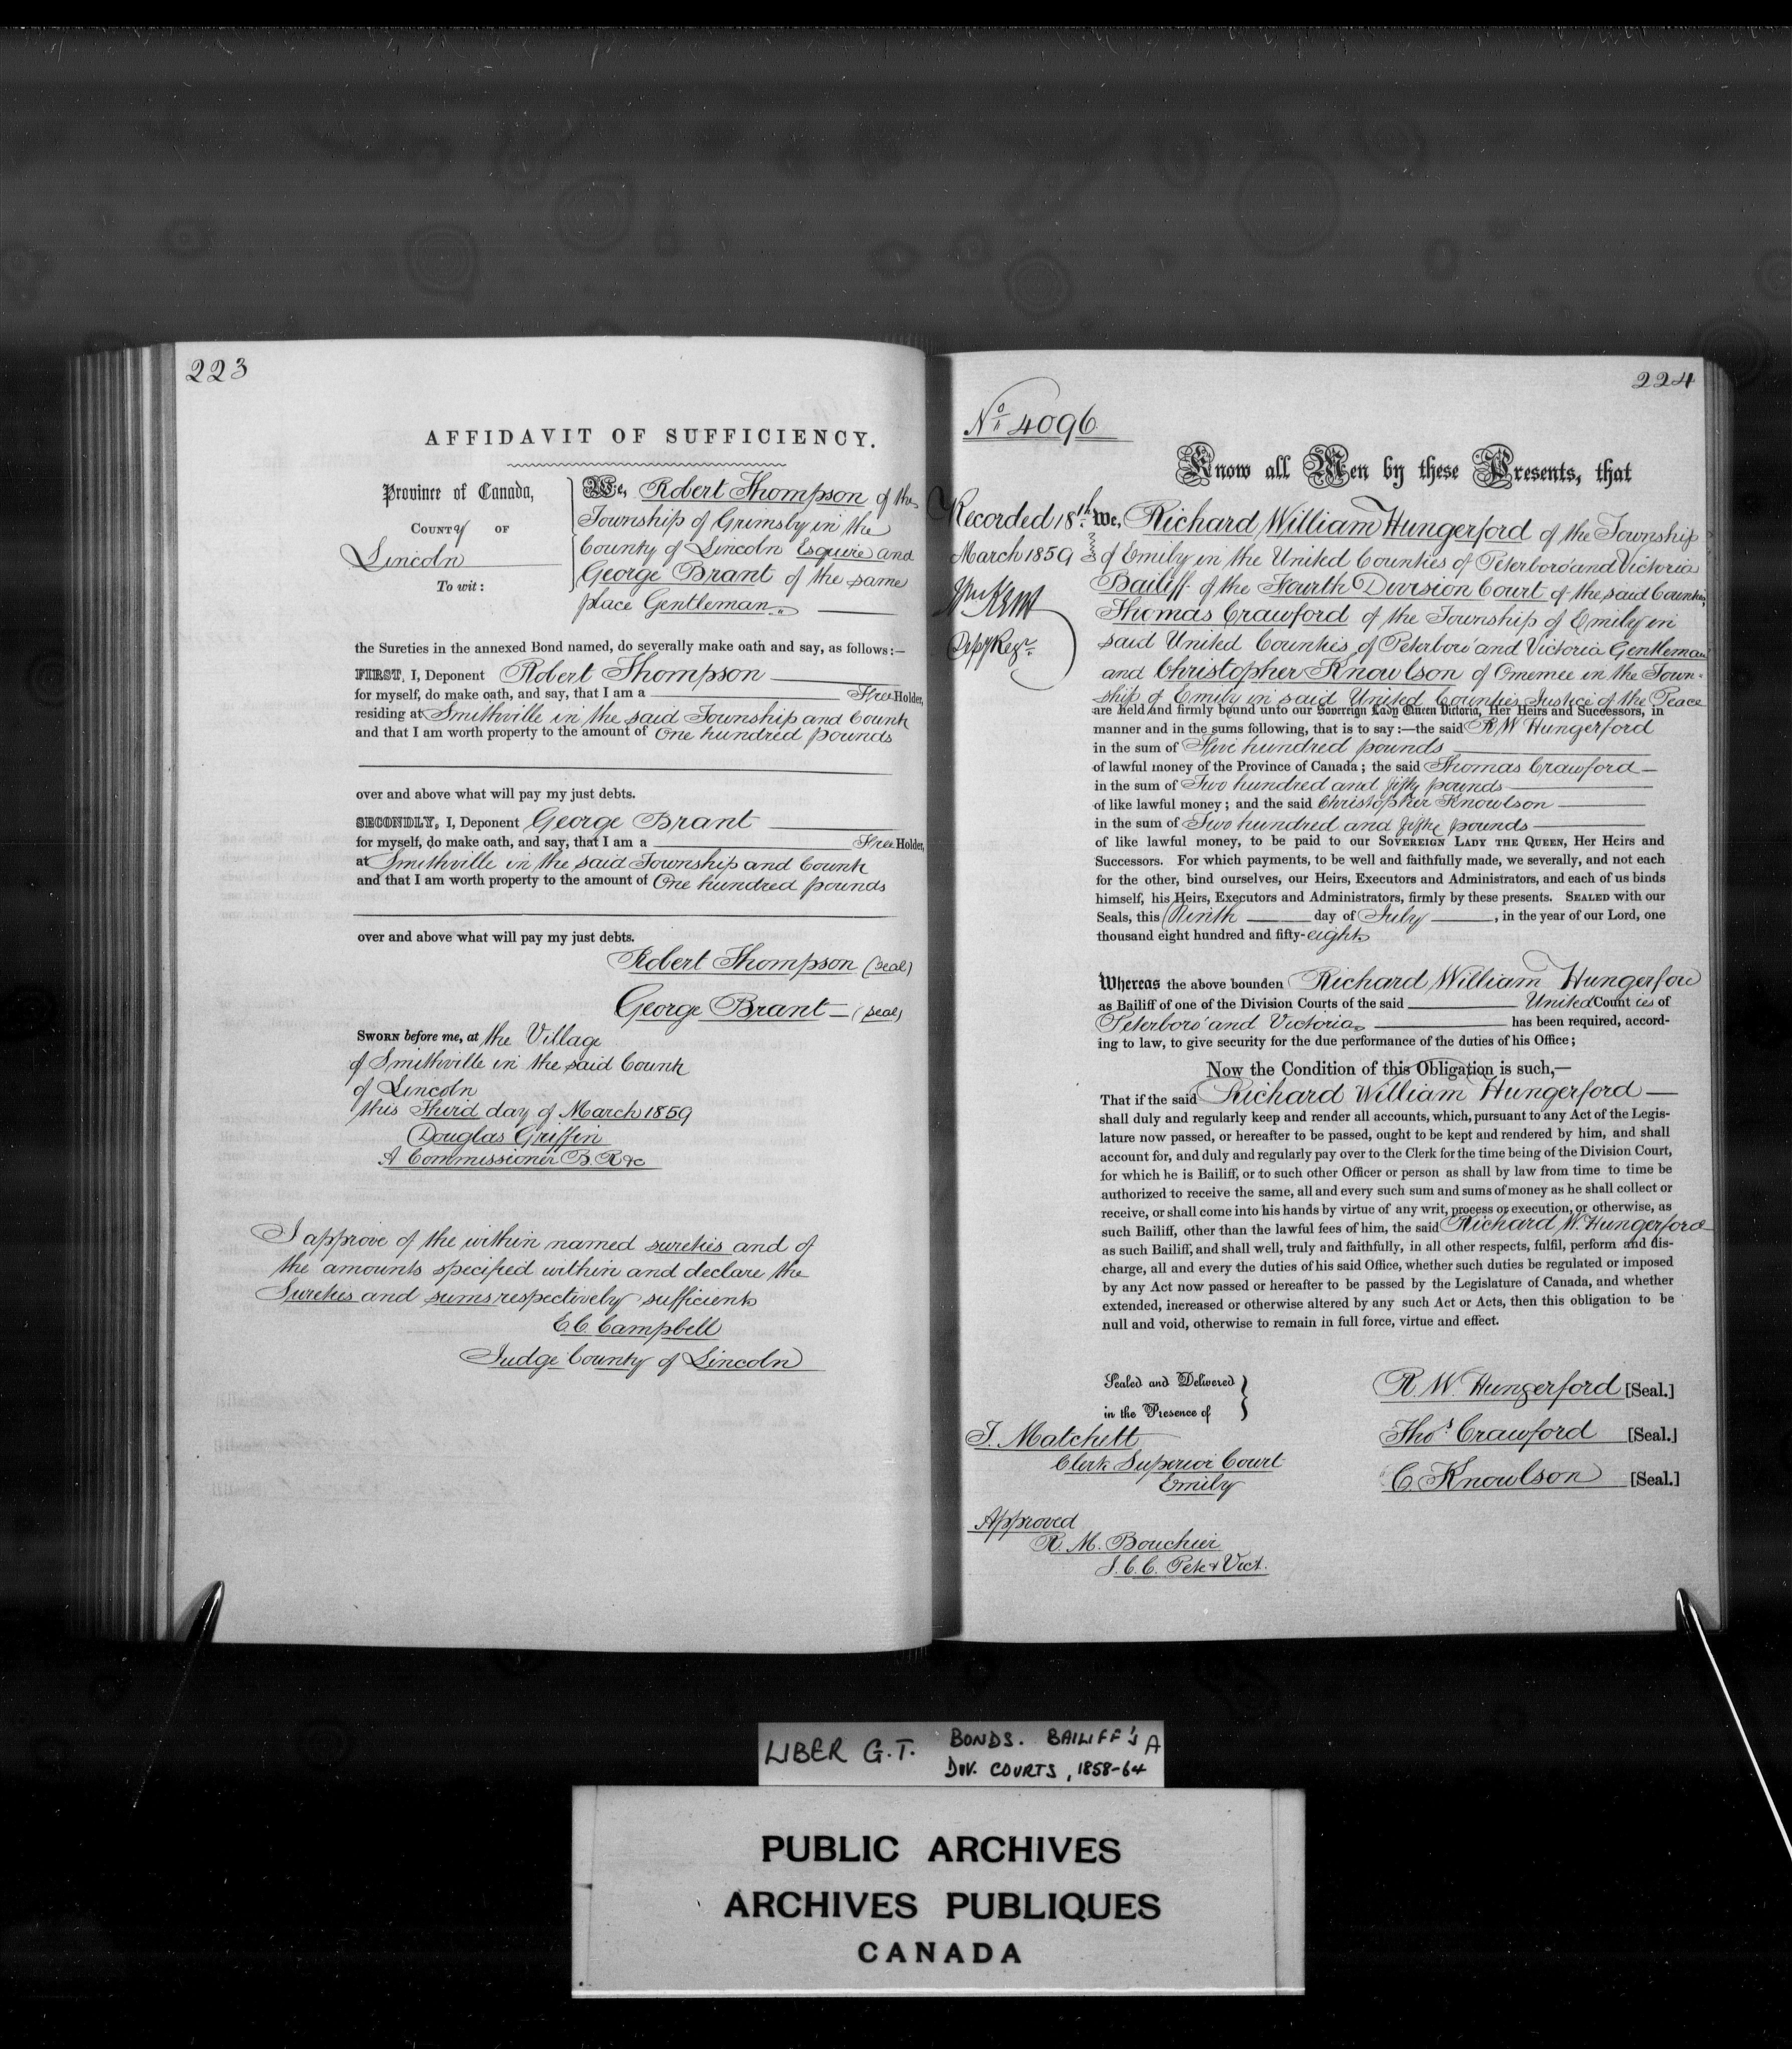 223
AFFIDAVIT OF SUFFICIENCY.
Province of Canada,
COUNTy OF
Lincoln
To wit:
We, Robert Thompson of the
Township of Grimsby in the
County of Lincoln Esquire and
George Brant of the same
place Gentleman
the Sureties in the annexed Bond named, do severally make oath and say, as follows:—
FIRST, I, Deponent Robert Thompson
for myself, do make oath, and say, that I am a Free Holder,
residing at Smithville in the said Township and County
and that I am worth property to the amount of One hundred pounds
over and above what will pay my just debts.
SECONDLY, I, Deponent George Brant
for myself, do make oath, and say, that I am a Free Holder,
at Smithville in the said Township and County
and that I am worth property to the amount of One hundred pounds
over and above what will pay my just debts.
Robert Thompson (seal)
George Brant — (seal)
SWORN before me, at the Village
of Smithville in the said County
of Lincoln
this Third day of March 1859
Douglas Griffin
A Commissioner B. R &c
I approve of the within named sureties and of
the amounts specified within and declare the
Sureties and sums respectively sufficient
E. C. Campbell
Judge County of Lincoln
224
No 4096
Know all Men by these Presents, that
Recorded 18th
March 1859
Depy Regr
We, Richard William Hungerford of the Township
of Emily in the United Counties of Peterboro' and Victoria
Bailiff of the Fourth Division Court of the said Counties,
Thomas Crawford of the Township of Emily in
said United Counties of Peterboro' and Victoria Gentleman
and Christopher Knowlson of Omemee in the Town-
ship of Emily in said United Counties Justice of the Peace
are held and firmly bound unto our Sovereign Lady Queen Victoria, Her Heirs and Successors, in
manner and in the sums following, that is to say:—the said R W Hungerford
in the sum of Five hundred pounds
of lawful money of the Province of Canada; the said Thomas Crawford —
in the sum of Two hundred and fifty pounds
of like lawful money; and the said Christopher Knowlson
in the sum of Two hundred and fifty pounds
of like lawful money, to be paid to our SOVEREIGN LADY THE QUEEN, Her Heirs and
Successors. For which payments, to be well and faithfully made, we severally, and not each
for the other, bind ourselves, our Heirs, Executors and Administrators, and each of us binds
himself, his Heirs, Executors and Administrators, firmly by these presents. SEALED with our
Seals, this Ninth day of July, in the year of our Lord, one
thousand eight hundred and fifty-eight
Whereas the above bounden Richard William Hungerford
as Bailiff of one of the Division Courts of the said United Counties of
Peterboro' and Victoria has been required, accord-
ing to law, to give security for the due performance of the duties of his Office;
Now the Condition of this Obligation is such,—
That if the said Richard William Hungerford —
shall duly and regularly keep and render all accounts, which, pursuant to any Act of the Legis-
lature now passed, or hereafter to be passed, ought to be kept and rendered by him, and shall
account for, and duly and regularly pay over to the Clerk for the time being of the Division Court,
for which he is Bailiff, or to such other Officer or person as shall by law from time to time be
authorized to receive the same, all and every such sum and sums of money as he shall collect or
receive, or shall come into his hands by virtue of any writ, process or execution, or otherwise, as
such Bailiff, other than the lawful fees of him, the said Richard W. Hungerford
as such Bailiff, and shall well, truly and faithfully, in all other respects, fulfil, perform and dis-
charge, all and every the duties of his said Office, whether such duties be regulated or imposed
by any Act now passed or hereafter to be passed by the Legislature of Canada, and whether
extended, increased or otherwise altered by any such Act or Acts, then this obligation to be
null and void, otherwise to remain in full force, virtue and effect.
Sealed and Delivered
in the Presence of
T. Matchett
Clerk Superior Court
Emily
R. W. Hungerford [Seal.]
Thos Crawford [Seal.]
C. Knowlson [Seal.]
Approved
R. M. Bouchier
J. C. C. Pete & Vict.
LIBER G.T. BONDS. BAILIFF'S A
DIV. COURTS, 1858-64
PUBLIC ARCHIVES
ARCHIVES PUBLIQUES
CANADA